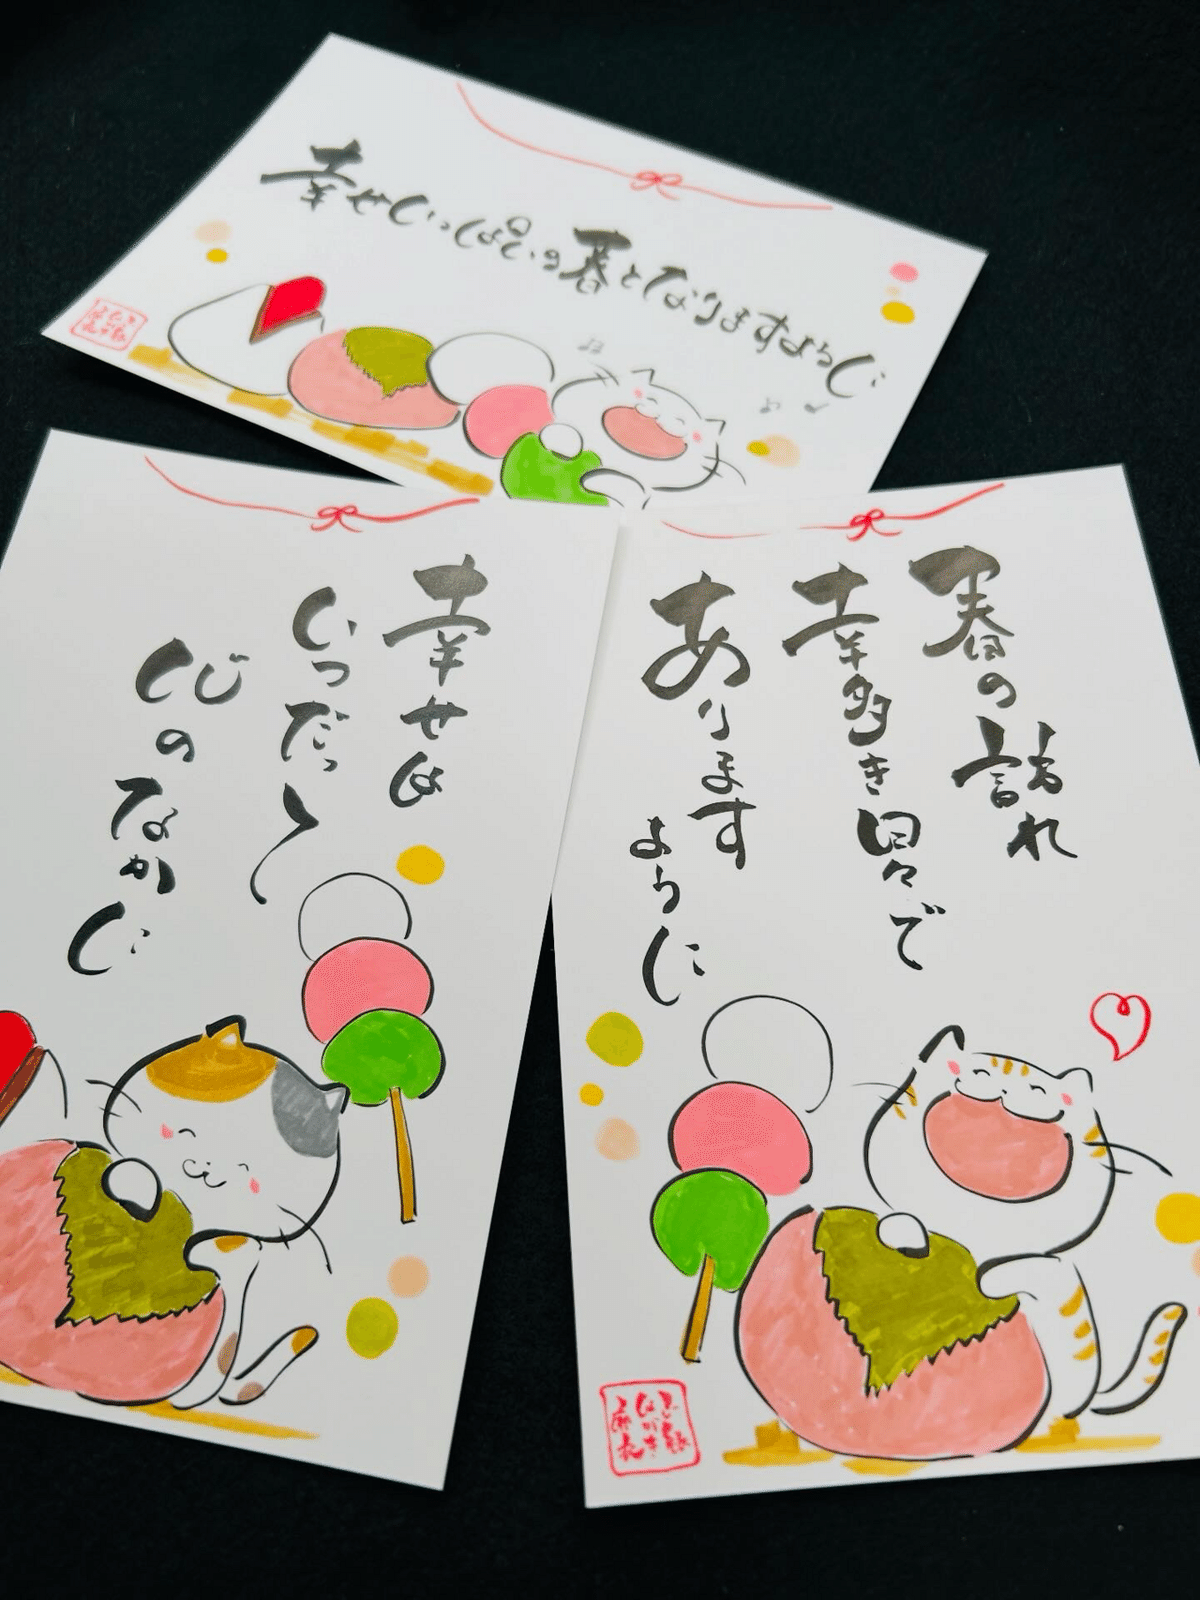 幸せいっぱいの春となりますように
幸せは
いつだって
心のなかに
春の訪れ
幸多き日々で
あります
ように